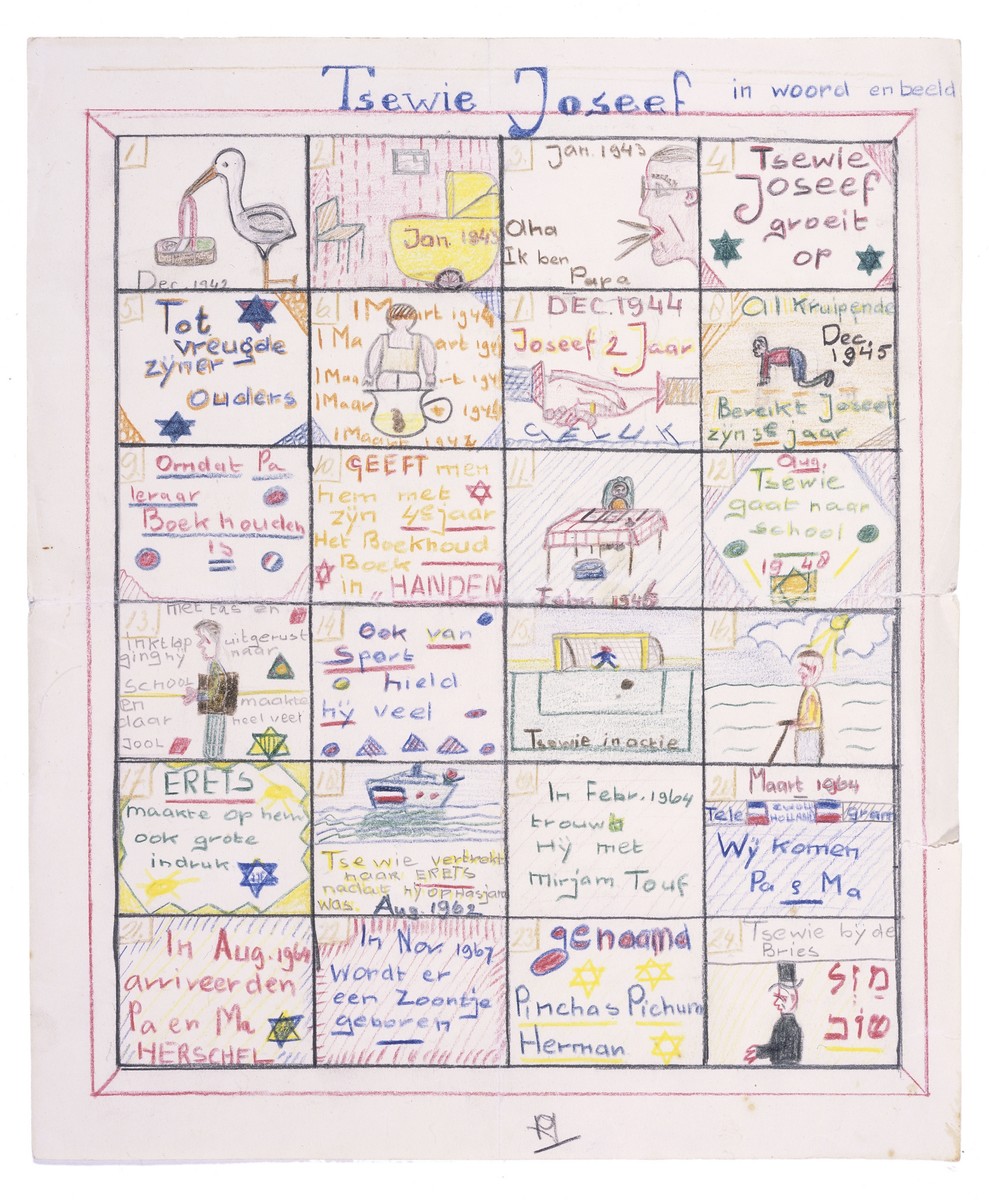 Tsewie Joseef in woord en beeld
1.
Dec. 1942
2.
Jan. 1943
3.
Jan. 1943
Aha
Ik ben
Papa
4.
Tsewie
Joseef
groeit
op
5.
Tot
vreugde
zijner
Ouders
6.
1 Maart 1944
1 Maart 194
1 Maart 194
1 Maart 194
1 Maart 194
7.
DEC. 1944
Joseef 2 Jaar
GELUK
8.
Al Kruipende
Dec.
1945
Bereikt Joseef
zijn 3e jaar
9.
Omdat Pa
leraar
Boekhouden
is
10.
GEEFT men
hem met
zijn 4e jaar
Het Boekhoud
Boek
in „HANDEN
11.
Febr. 194
12.
Aug.
Tsewie
gaat naar
School
1948
13.
met tas en
inktlap uitgerust
ging hij naar
School
en maakte
daar heel veel
JOOL
14.
Ook van
Sport
hield
hij veel
15.
Tsewie in actie
16.
17.
ERETS
maakte op hem
ook grote
indruk
18.
Tsewie vertrekt
naar ERETS
nadat hij op Hasjara
was. Aug. 1962
19.
In Febr. 1964
trouwt
Hij met
Mirjam Touf
20.
Maart 1964
Tele gram
HOLLAND
Wij komen
Pa & Ma
21.
In Aug. 1964
arriveerden
Pa en Ma
HERSCHEL
22.
In Nov. 1967
Wordt er
een Zoontje
geboren
23.
genaamd
Pinchas Pichum
Herman
24.
Tsewie bij de
Bries
מזל
טוב